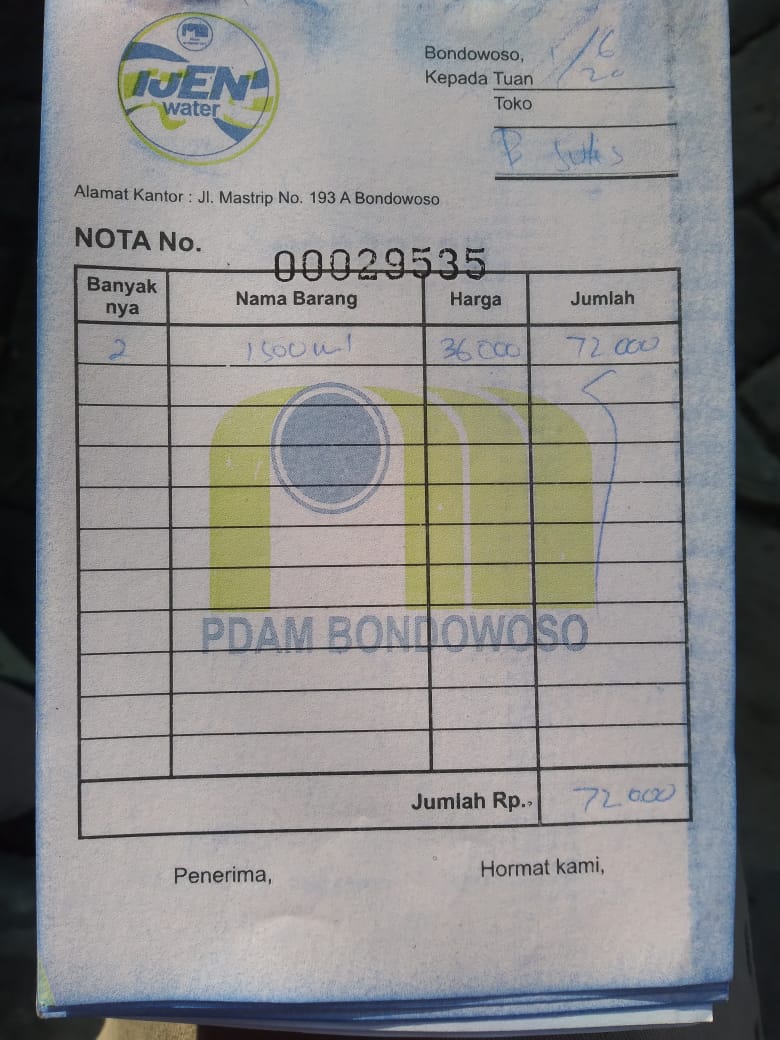 IJEN
water
Bondowoso, 1/6
Kepada Tuan 20
Toko
B
Alamat Kantor : Jl. Mastrip No. 193 A Bondowoso
NOTA No. 00029535
Banyak nya Nama Barang Harga Jumlah
2 1500 ml 36 000 72 000
PDAM BONDOWOSO
Jumlah Rp. 72 000
Penerima, Hormat kami,